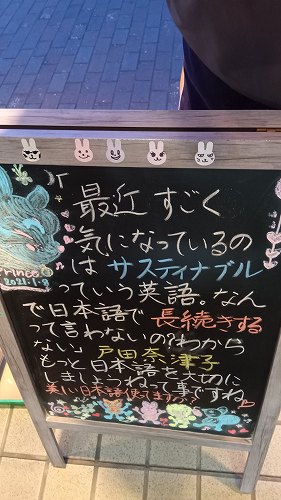 最近 すごく
気になっているの
は サスティナブル
っていう英語。なん
で日本語で 長続きする
って言わないの?わから
ない」戸田奈津子
もっと 日本語を大切に
しましょうねって事ですね
美しい日本語使えてますか??
Prince
2021.1.8